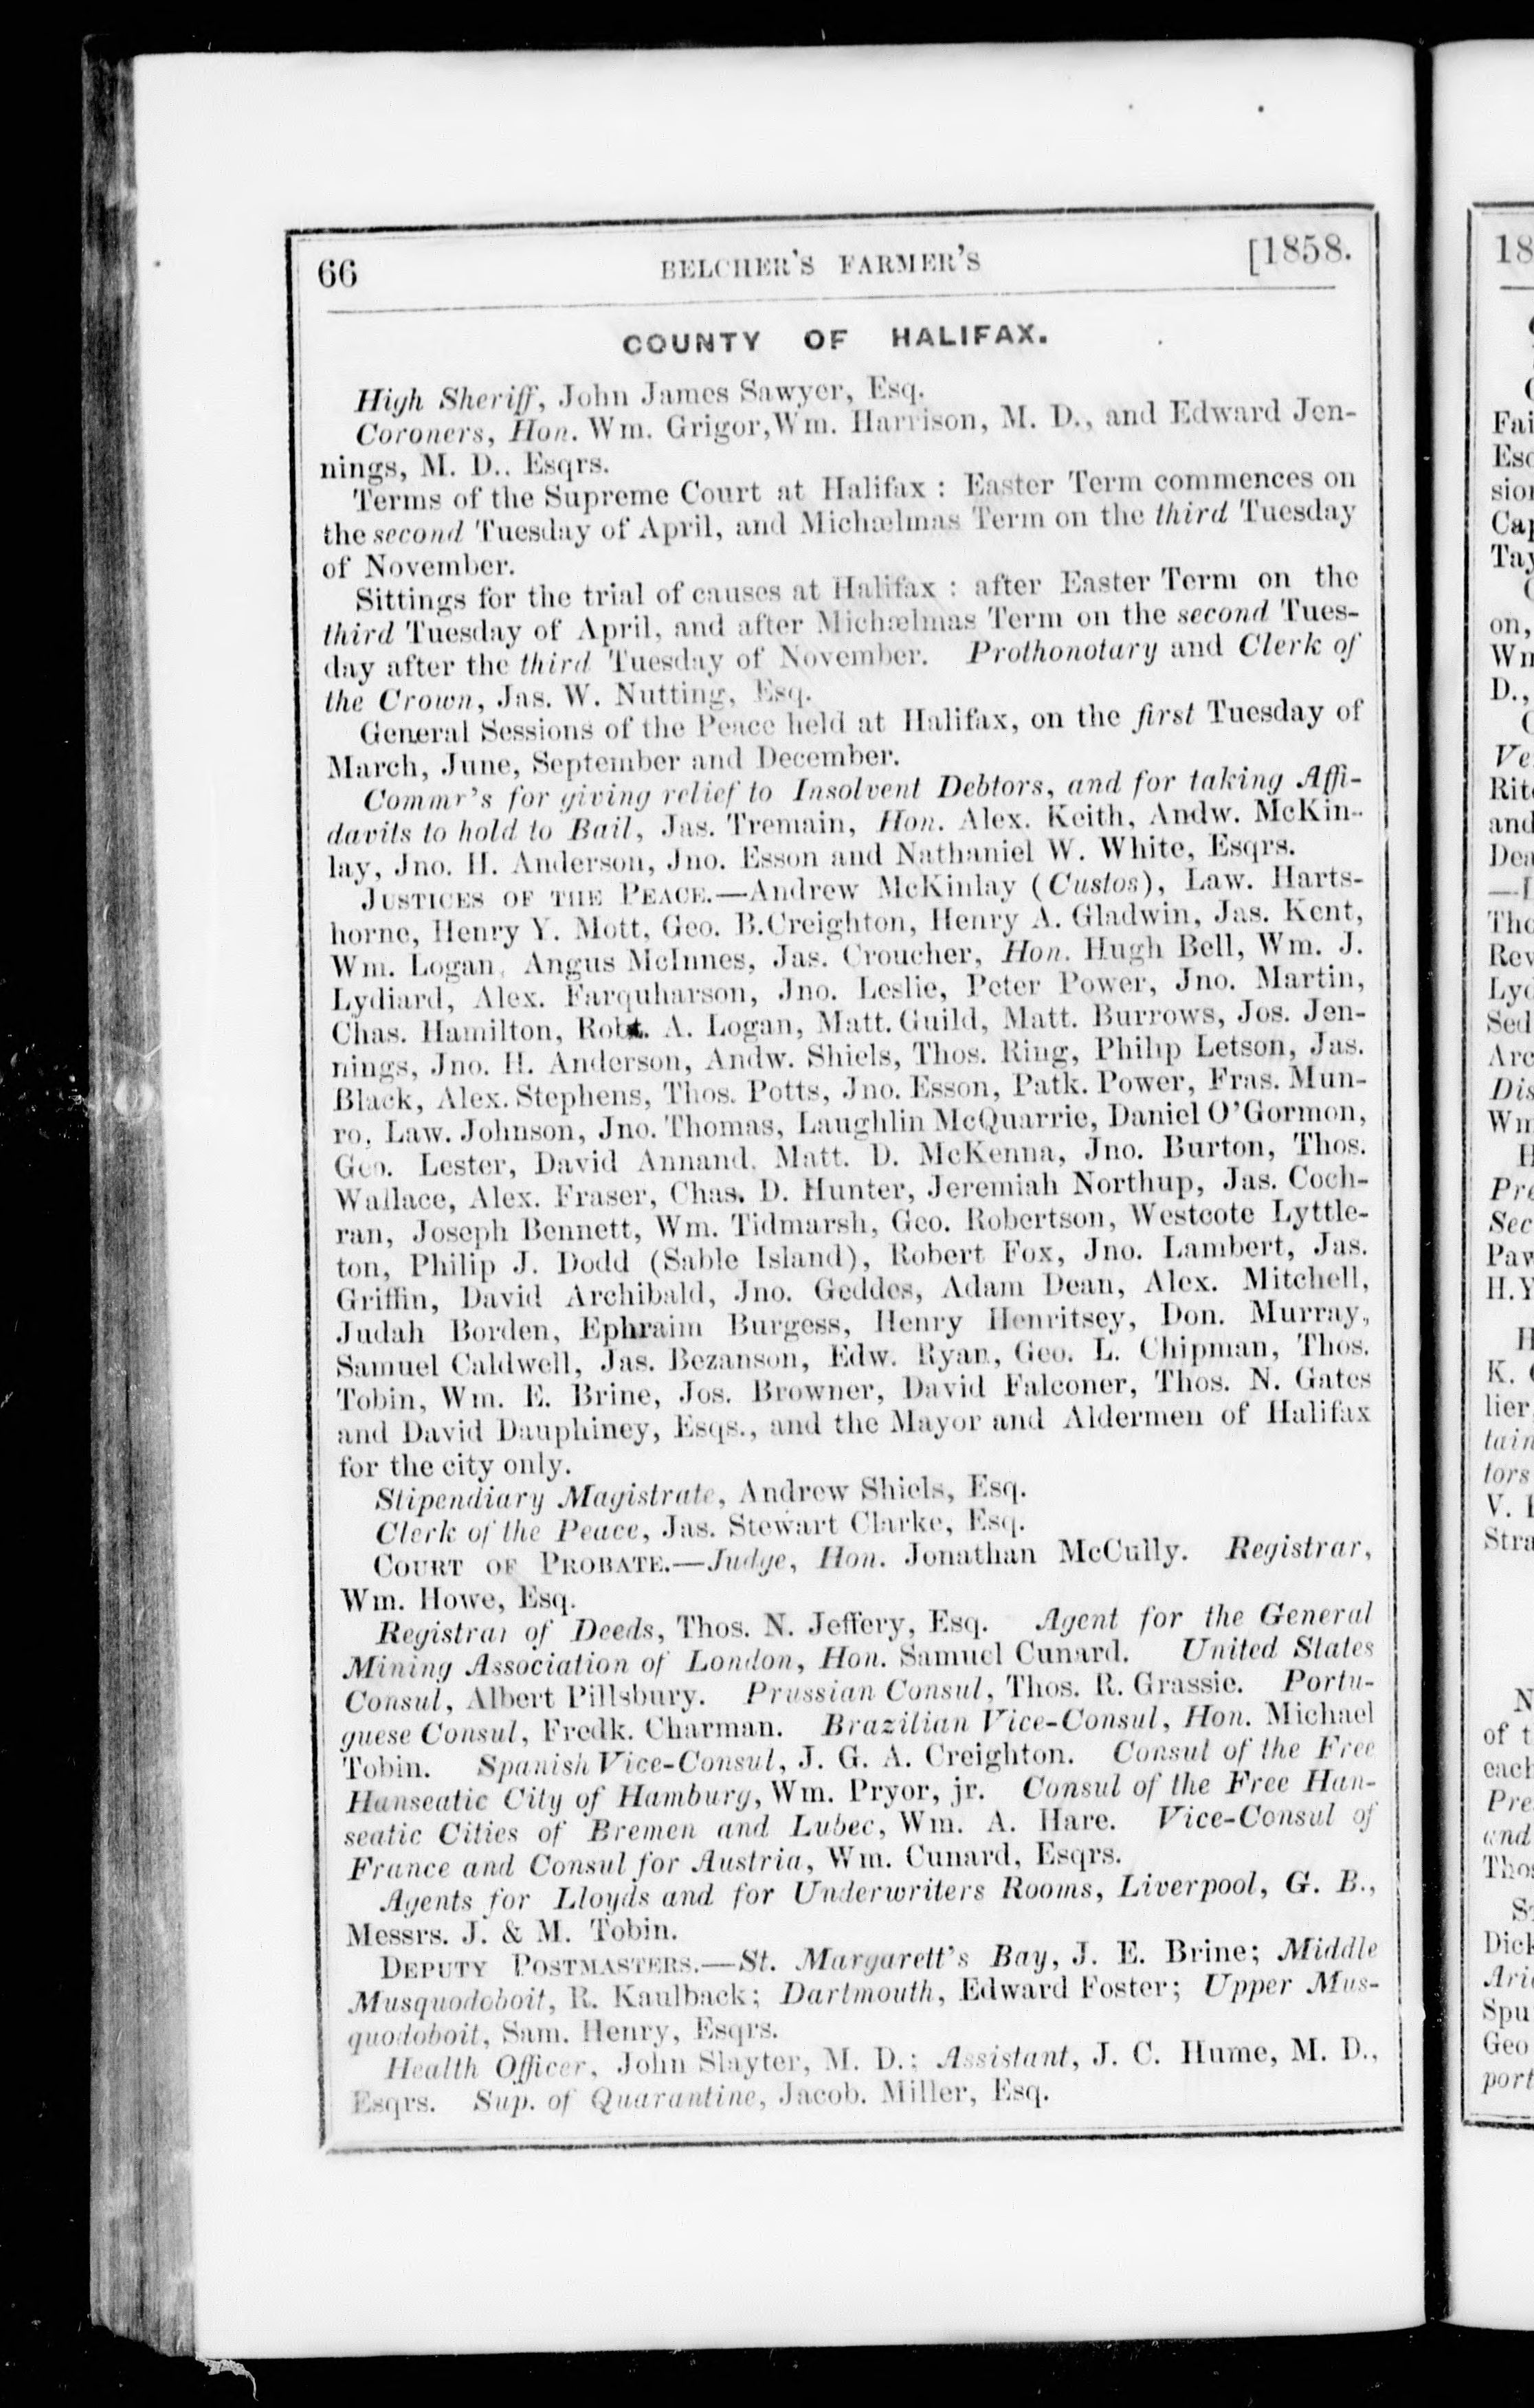 66 BELCHER'S FARMER'S [1858.
COUNTY OF HALIFAX.
High Sheriff, John James Sawyer, Esq.
Coroners, Hon. Wm. Grigor, Wm. Harrison, M. D., and Edward Jen-
nings, M. D.. Esqrs.
Terms of the Supreme Court at Halifax : Easter Term commences on
the second Tuesday of April, and Michælmas Term on the third Tuesday
of November.
Sittings for the trial of causes at Halifax : after Easter Term on the
third Tuesday of April, and after Michælmas Term on the second Tues-
day after the third Tuesday of November. Prothonotary and Clerk of
the Crown, Jas. W. Nutting, Esq.
General Sessions of the Peace held at Halifax, on the first Tuesday of
March, June, September and December.
Commr's for giving relief to Insolvent Debtors, and for taking Affi-
davits to hold to Bail, Jas. Tremain, Hon. Alex. Keith, Andw. McKin-
lay, Jno. H. Anderson, Jno. Esson and Nathaniel W. White, Esqrs.
JUSTICES OF THE PEACE.—Andrew McKinlay (Custos), Law. Harts-
horne, Henry Y. Mott, Geo. B. Creighton, Henry A. Gladwin, Jas. Kent,
Wm. Logan, Angus McInnes, Jas. Croucher, Hon. Hugh Bell, Wm. J.
Lydiard, Alex. Farquharson, Jno. Leslie, Peter Power, Jno. Martin,
Chas. Hamilton, Robt. A. Logan, Matt. Guild, Matt. Burrows, Jos. Jen-
nings, Jno. H. Anderson, Andw. Shiels, Thos. Ring, Philip Letson, Jas.
Black, Alex. Stephens, Thos. Potts, Jno. Esson, Patk. Power, Fras. Mun-
ro, Law. Johnson, Jno. Thomas, Laughlin McQuarrie, Daniel O'Gormon,
Geo. Lester, David Annand, Matt. D. McKenna, Jno. Burton, Thos.
Wallace, Alex. Fraser, Chas. D. Hunter, Jeremiah Northup, Jas. Coch-
ran, Joseph Bennett, Wm. Tidmarsh, Geo. Robertson, Westcote Lyttle-
ton, Philip J. Dodd (Sable Island), Robert Fox, Jno. Lambert, Jas.
Griffin, David Archibald, Jno. Geddes, Adam Dean, Alex. Mitchell,
Judah Borden, Ephraim Burgess, Henry Henritsey, Don. Murray,
Samuel Caldwell, Jas. Bezanson, Edw. Ryan, Geo. L. Chipman, Thos.
Tobin, Wm. E. Brine, Jos. Browner, David Falconer, Thos. N. Gates
and David Dauphiney, Esqs., and the Mayor and Aldermen of Halifax
for the city only.
Stipendiary Magistrate, Andrew Shiels, Esq.
Clerk of the Peace, Jas. Stewart Clarke, Esq.
COURT OF PROBATE.—Judge, Hon. Jonathan McCully. Registrar,
Wm. Howe, Esq.
Registrar of Deeds, Thos. N. Jeffery, Esq. Agent for the General
Mining Association of London, Hon. Samuel Cunard. United States
Consul, Albert Pillsbury. Prussian Consul, Thos. R. Grassie. Portu-
guese Consul, Fredk. Charman. Brazilian Vice-Consul, Hon. Michael
Tobin. Spanish Vice-Consul, J. G. A. Creighton. Consul of the Free
Hanseatic City of Hamburg, Wm. Pryor, jr. Consul of the Free Han-
seatic Cities of Bremen and Lubec, Wm. A. Hare. Vice-Consul of
France and Consul for Austria, Wm. Cunard, Esqrs.
Agents for Lloyds and for Underwriters Rooms, Liverpool, G. B.,
Messrs. J. & M. Tobin.
DEPUTY POSTMASTERS.—St. Margarett's Bay, J. E. Brine; Middle
Musquodoboit, R. Kaulback; Dartmouth, Edward Foster; Upper Mus-
quodoboit, Sam. Henry, Esqrs.
Health Officer, John Slayter, M. D.; Assistant, J. C. Hume, M. D.,
Esqrs. Sup. of Quarantine, Jacob. Miller, Esq.